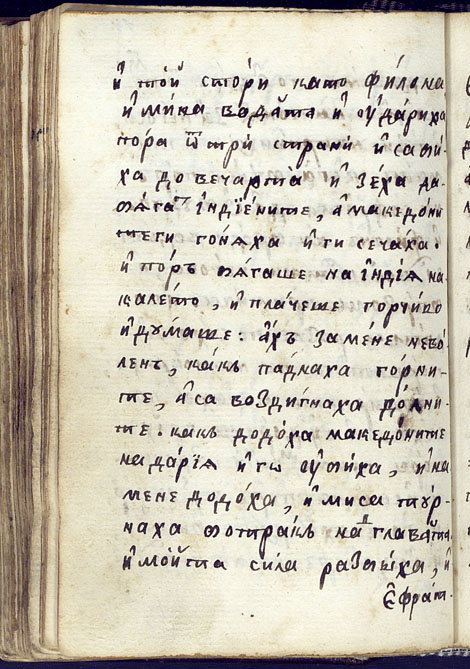 и҆ то́й сто́ри като фи́лона
и҆ ми́на вода̀та и҆ ѹ҆да́риха
пора ѿ три̏ страни̏ и҆ са би́-
ха до вечартѐа и҆ зе́ха да
бѧ́гатъ і҆ндїе́ните, а҆ македо́ни
теги го́нѧха и҆ ги сеча́ха.
и҆ по́ръ бѧ́гаше на і҆нді́ѧ на
кале́то, и҆ пла́чеше горчи́во
и҆ дѹ́маше. а҆́хъ за ме́не нево́-
ленъ, ка́къ па́днаха го́рни-
те, а҆ са воздигнаха до́лни-
те. какъ додо́ха македо́ните
на да́рїѧ и҆ го ѹ҆би́ха, и҆ на
мене додо́ха, и҆ ми са тур-
наха ботракъ на глава̀та.
и҆ мо́йта си́ла разби́ха, и҆
є҆фра́т.